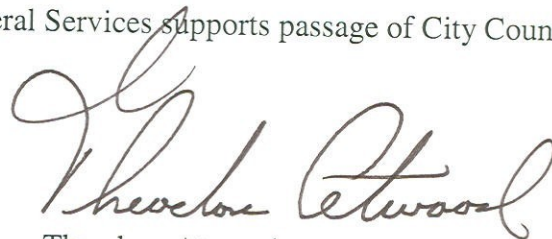 eral Services supports passage of City Coun
Theodore Atwood